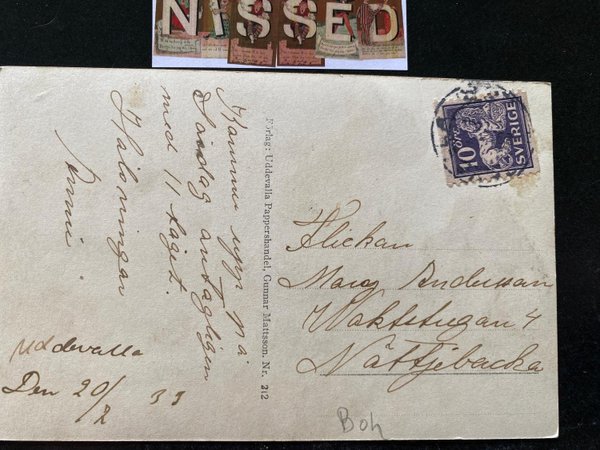 NISSED
Kommer upp på
Lördag antagligen
med 11 taget.
Hälsningar
Uddevalla
Den 20/2 33
Förlag: Uddevalla Pappershandel, Gunnar Mattsson. Nr. 212
10 ÖRE
SVERIGE
Flickan
Andersson
4
Nättjebacka
Boh